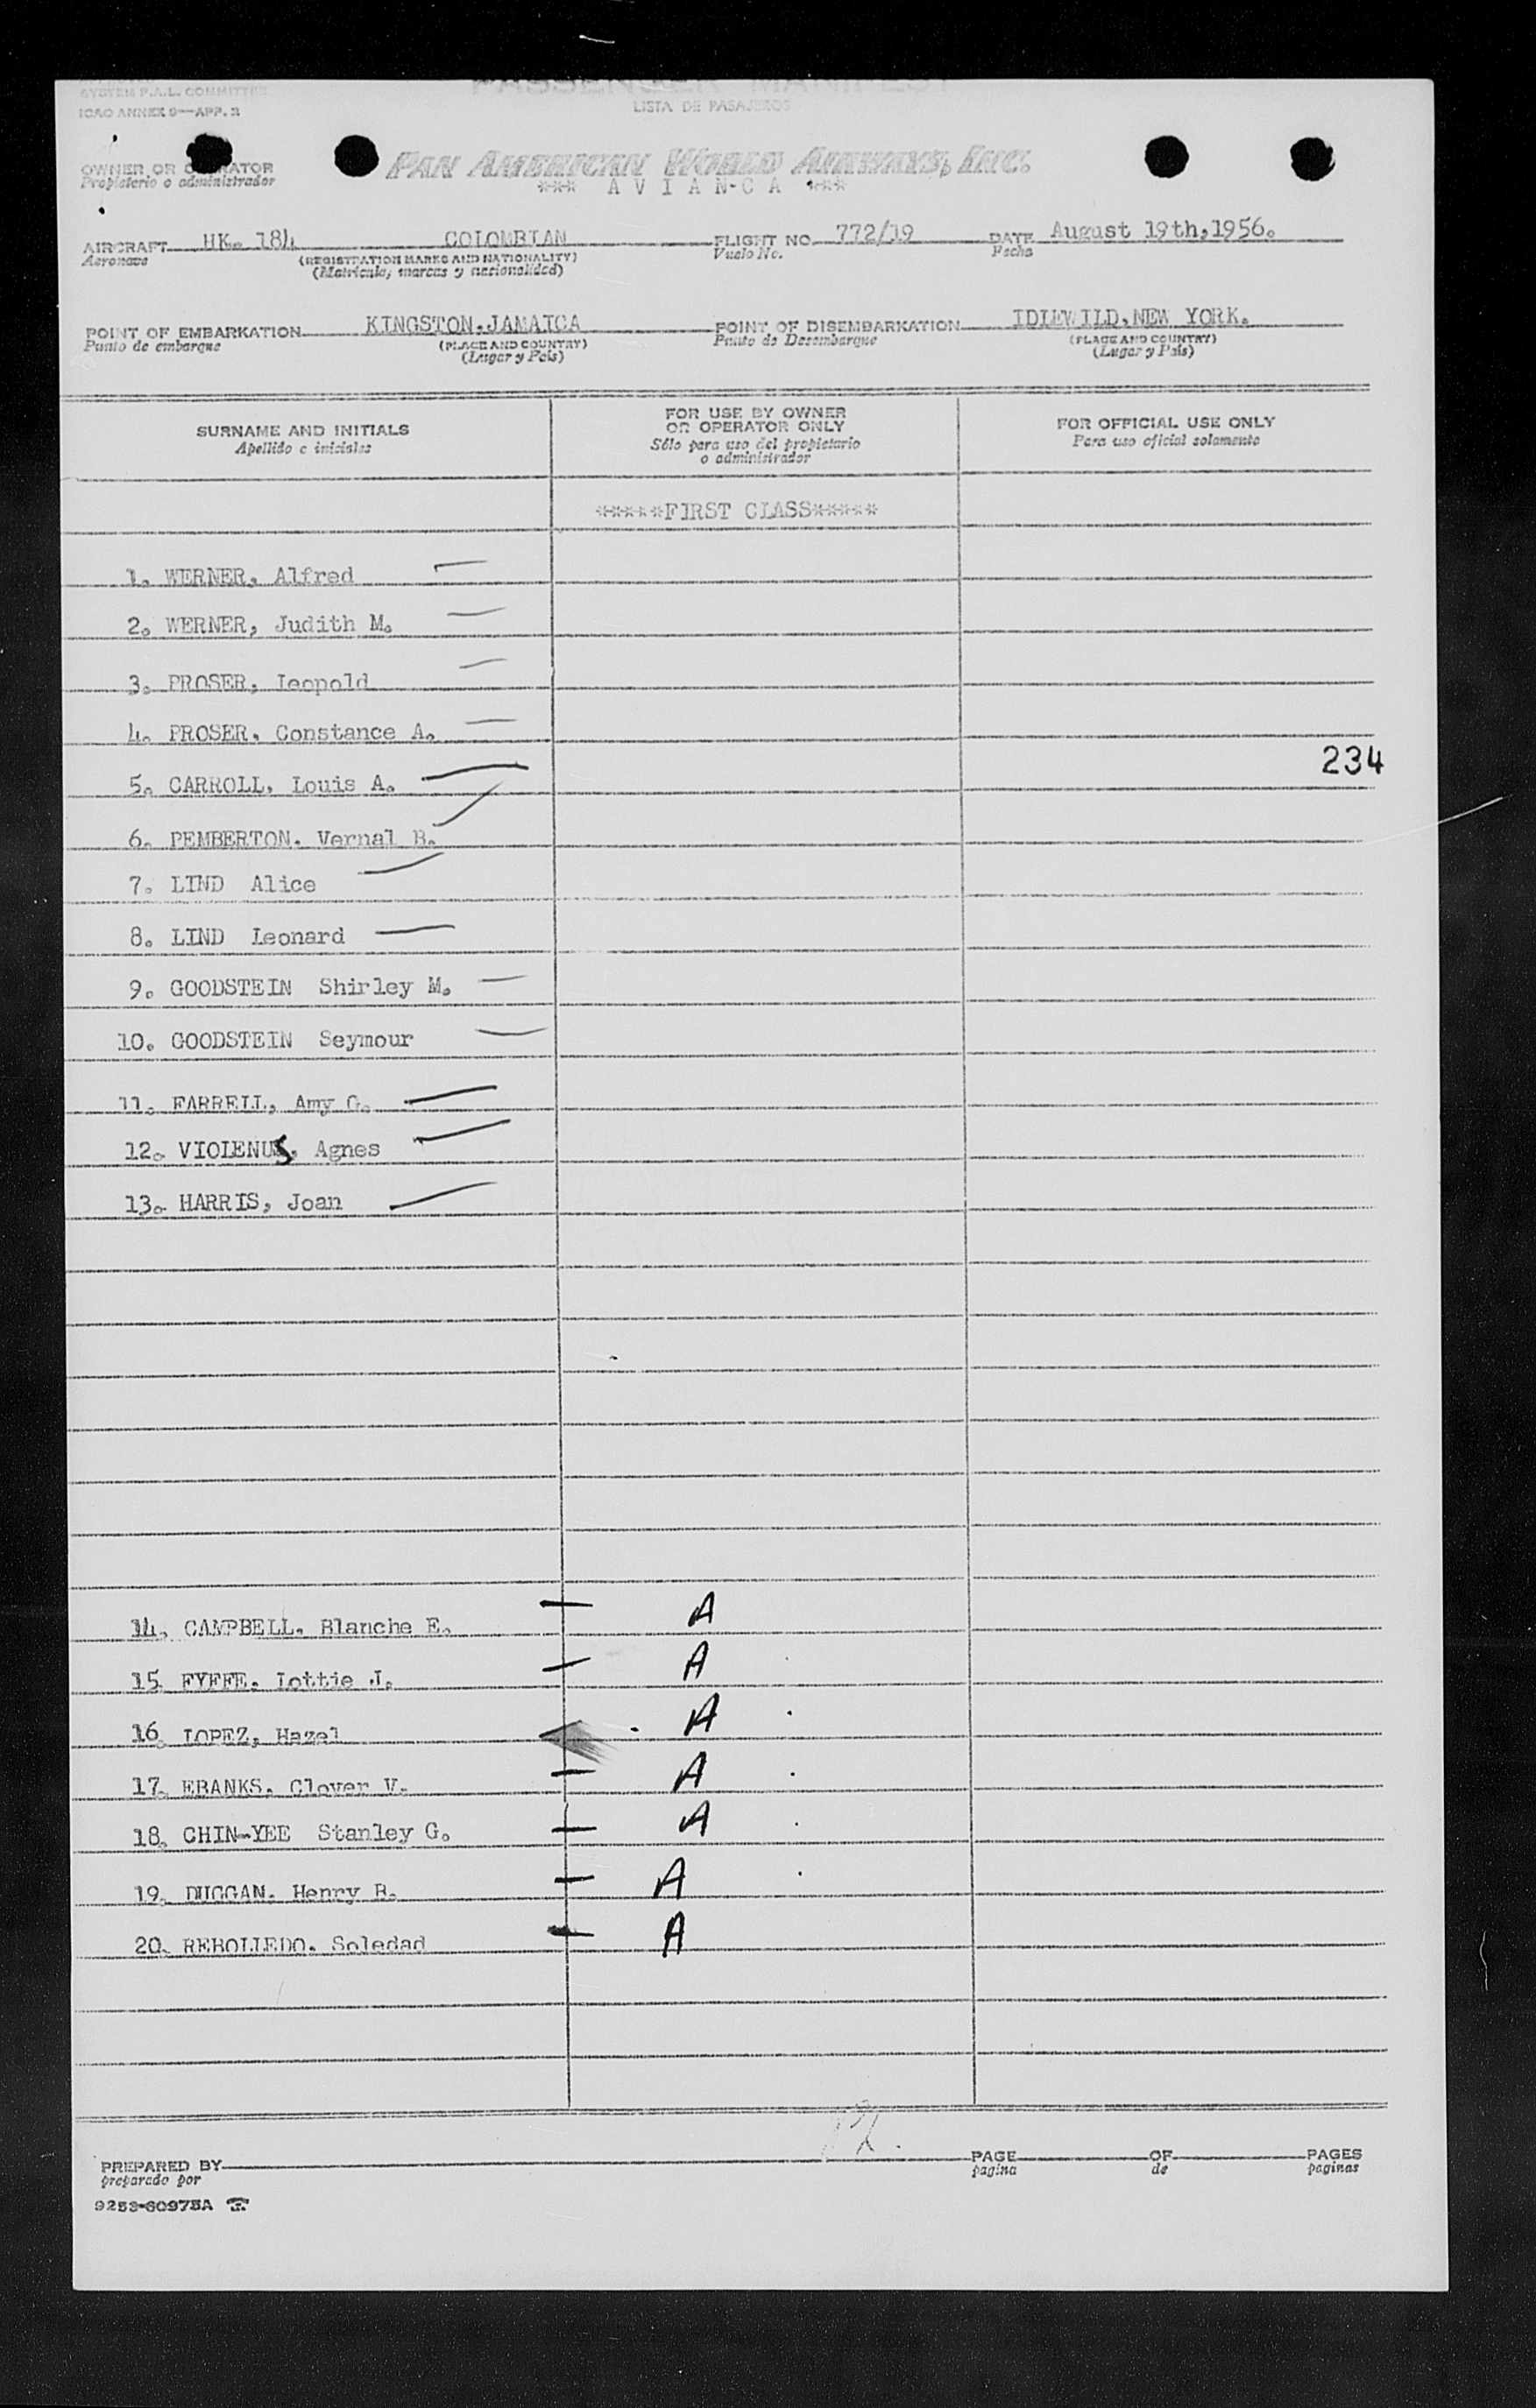 SYSTEM F.A.L. COMMITTEE
PASSENGER MANIFEST
ICAO ANNEX 9—APP. 2
LISTA DE PASAJEROS
OWNER OR OPERATOR
Propietario o administrador
PAN AMERICAN WORLD AIRWAYS, INC.
*** A V I A N-C A ***
AIRCRAFT HK. 184 COLOMBIAN FLIGHT NO. 772/19 DATE August 19th,1956.
Aeronave (REGISTRATION MARKS AND NATIONALITY) Vuelo No. Fecha
(Matricula, marcas y nacionalidad)
POINT OF EMBARKATION KINGSTON,JAMAICA POINT OF DISEMBARKATION IDLEWILD,NEW YORK.
Punto de embarque (PLACE AND COUNTRY) Punto de Desembarque (PLACE AND COUNTRY)
(Lugar y País) (Lugar y País)
SURNAME AND INITIALS FOR USE BY OWNER OR OPERATOR ONLY FOR OFFICIAL USE ONLY
Apellido e iniciales Sólo para uso del propietario o administrador Para uso oficial solamente
*****FIRST CLASS*****
1. WERNER, Alfred
2. WERNER, Judith M.
3. PROSER, Leopold
4. PROSER, Constance A.
234
5. CARROLL, Louis A.
6. PEMBERTON, Vernal B.
7. LIND Alice
8. LIND Leonard
9. GOODSTEIN Shirley M.
10. GOODSTEIN Seymour
11. FARRELL, Amy G.
12. VIOLENUS, Agnes
13. HARRIS, Joan
14. CAMPBELL, Blanche E. A
15. FYFFE, Lottie J. A
16. LOPEZ, Hazel A
17. EBANKS, Clover V. A
18. CHIN-YEE Stanley G. A
19. DUGGAN, Henry B. A
20. REBOLLEDO, Soledad A
PREPARED BY PAGE OF PAGES
preparado por pagina de paginas
9253-60975A